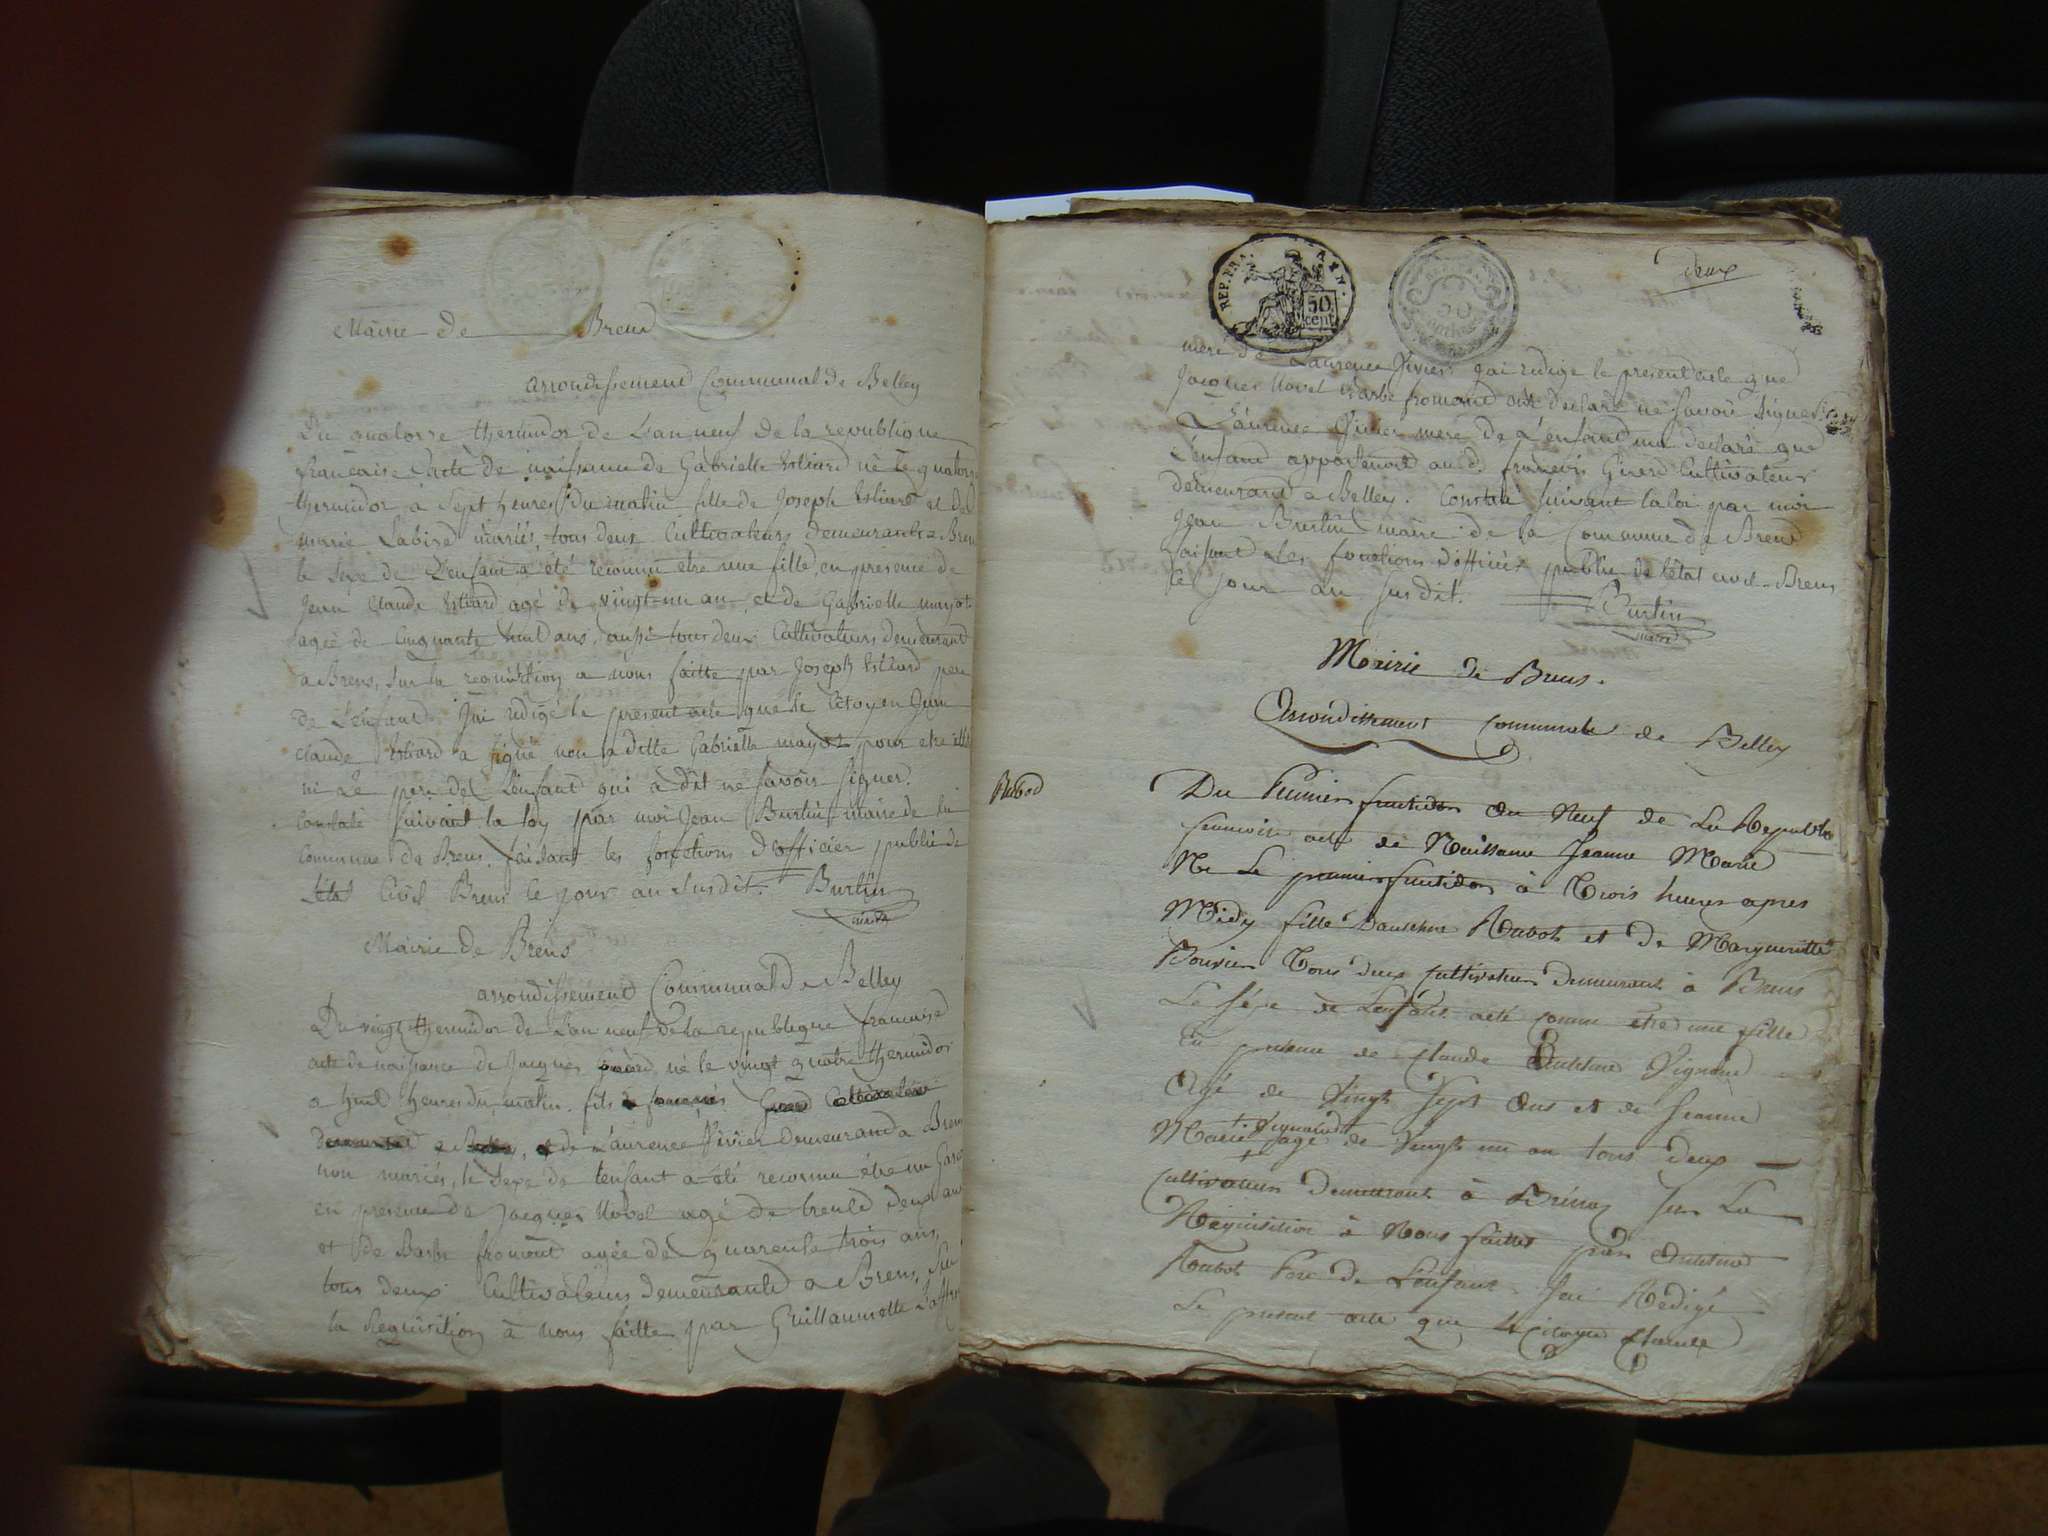 Mairie de Brens
arrondissement Communal de Belley
Du quatorze thermidor de L'an neuf de la republique
française acte de naissance de Gabrielle Estiard né le quatorze
thermidor à Sept heures du matin fille de Joseph Estiard et de
marie Labire mariés, tous deux Cultivateurs demeurants a Brens
le Sexe de L'enfant a été reconnu etre une fille, en presence de
Jean Claude Estiard agé de vingt-un an, et de Gabrielle mayot
agée de Cinquante huit ans, aussi tous deux Cultivateurs demeurand
a Brens, Sur la requisition a nous faitte par Joseph Estiard pere
de L'enfant. J'ai rédigé le present acte que le Citoyen Jean
Claude Estiard a signé non laditte Gabrielle mayot pour etre
ni Le pere de L'enfant qui a dit ne Savoir Signer.
Constaté Suivant la loy par moi Jean Burtin maire de la
Commune de Brens faisant les fonctions d'officier public de
L'état Civil Brens le jour an Susdit. Burtin
maire
Mairie de Brens
arrondissement Communal de Belley
Du vingt thermidor de L'an neuf de la republique francaise
acte de naissance de Jacques né le vingt quatre thermidor
a huit heures du matin. fils
de Laurence Jivier Demeurand a Brens
non mariés, le Sexe de l'enfant a été reconnu être un Garçon
en presence de Jacques Novel agé de trente deux ans
et de Barbe fromont agée de quarente trois ans
tous deux Cultivateurs demeurants a Brens, Sur
la Requisition à nous faitte par Guillaumette
deux
REP. FRA.
50
cent
mere de Laurence Jivier j'ai redigé le present acte que
Jacques Novel Barbe fromand ont declaré ne Savoir Signer
Laurence Jivier mere de L'enfant ma declaré que
L'enfant appartenoit au d. francois Girard Cultivateur
demeurand a Belley. Constaté Suivant la loi par moi
Jean Burtin maire de la Commune de Brens
faisant les fonctions d'officier public de l'état civil. Brens
le jour an susdit. Burtin
maire
Mairie de Brens.
Arrondissement communale de Belley
Rubod
Du Premier fructidor an Neuf de La Republi
francoise acte de Naissance Jeanne Marie
Ne Le premier fructidor à Trois heures apres
Midy fille Danthme Rubot et de Margueritte
Bouvier Tous deux cultivateurs Demeurant à Brens
Le Sexe de Lenfant a été connu etre une fille
En presence de Claude Anthme Vignond
Agé de Vingt Sept Ans et de Jeanne
Marie Vignond agé de Vingt un an tous deux
cultivateurs Demeurant à Sur La
Requisition à Nous faitte par Anthme
Rubot Pere de L'enfant Jai Redigé
Le present acte que le citoyen Claude